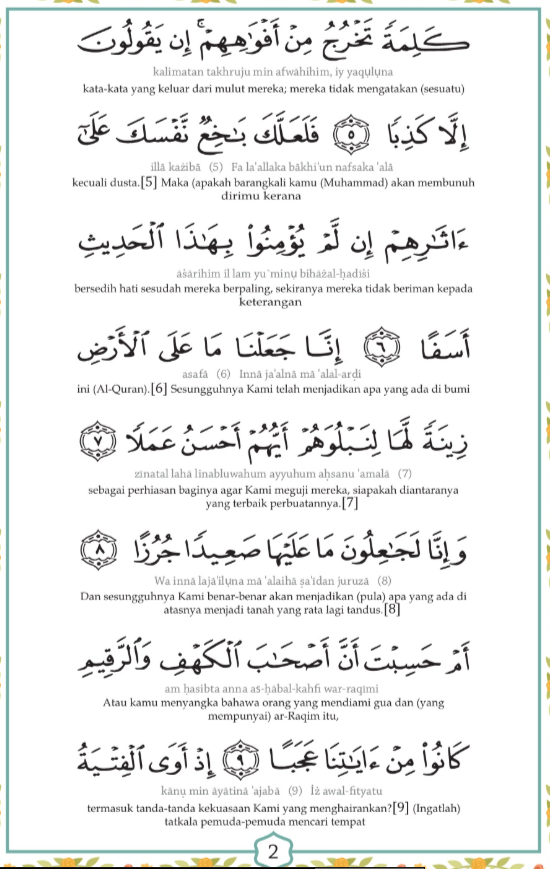 كَلِمَةً تَخْرُجُ مِنْ أَفْوَٰهِهِمْ ۚ إِن يَقُولُونَ
kalimatan takhruju min afwahihim, iy yaqụlụna
kata-kata yang keluar dari mulut mereka; mereka tidak mengatakan (sesuatu)
إِلَّا كَذِبًا ٥ فَلَعَلَّكَ بَـٰخِعٌ نَّفْسَكَ عَلَىٰٓ
illā każibā (5) Fa la'allaka bākhi'un nafsaka 'alā
kecuali dusta.[5] Maka (apakah barangkali kamu (Muhammad) akan membunuh
dirimu kerana
ءَاثَـٰرِهِمْ إِن لَّمْ يُؤْمِنُوا۟ بِهَـٰذَا ٱلْحَدِيثِ
āṡārihim il lam yu`minụ bihāżal-ḥadīṡi
bersedih hati sesudah mereka berpaling, sekiranya mereka tidak beriman kepada
keterangan
أَسَفًا ٦ إِنَّا جَعَلْنَا مَا عَلَى ٱلْأَرْضِ
asafā (6) Innā ja'alnā mā 'alal-arḍi
ini (Al-Quran).[6] Sesungguhnya Kami telah menjadikan apa yang ada di bumi
زِينَةً لَّهَا لِنَبْلُوَهُمْ أَيُّهُمْ أَحْسَنُ عَمَلًا ٧
zīnatal lahā linabluwahum ayyuhum aḥsanu 'amalā (7)
sebagai perhiasan baginya agar Kami meguji mereka, siapakah diantaranya
yang terbaik perbuatannya.[7]
وَإِنَّا لَجَـٰعِلُونَ مَا عَلَيْهَا صَعِيدًا جُرُزًا ٨
Wa innā lajā'ilụna mā 'alaihā ṣa'īdan juruzā (8)
Dan sesungguhnya Kami benar-benar akan menjadikan (pula) apa yang ada di
atasnya menjadi tanah yang rata lagi tandus.[8]
أَمْ حَسِبْتَ أَنَّ أَصْحَـٰبَ ٱلْكَهْفِ وَٱلرَّقِيمِ
am ḥasibta anna as-ḥābal-kahfi war-raqīmi
Atau kamu menyangka bahawa orang yang mendiami gua dan (yang
mempunyai) ar-Raqim itu,
كَانُوا۟ مِنْ ءَايَـٰتِنَا عَجَبًا ٩ إِذْ أَوَى ٱلْفِتْيَةُ
kānụ min āyātinā 'ajabā (9) Iż awal-fityatu
termasuk tanda-tanda kekuasaan Kami yang menghairankan?[9] (Ingatlah)
tatkala pemuda-pemuda mencari tempat
2